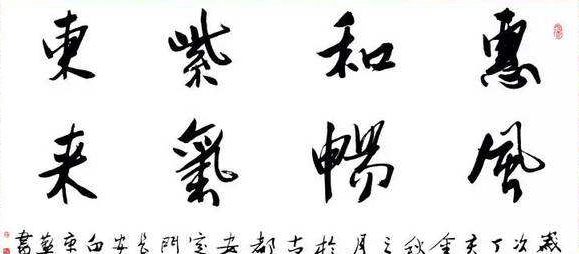 惠風
和暢
紫氣
東来
歲次丁亥金秋之月於古都安定門長安白東華書